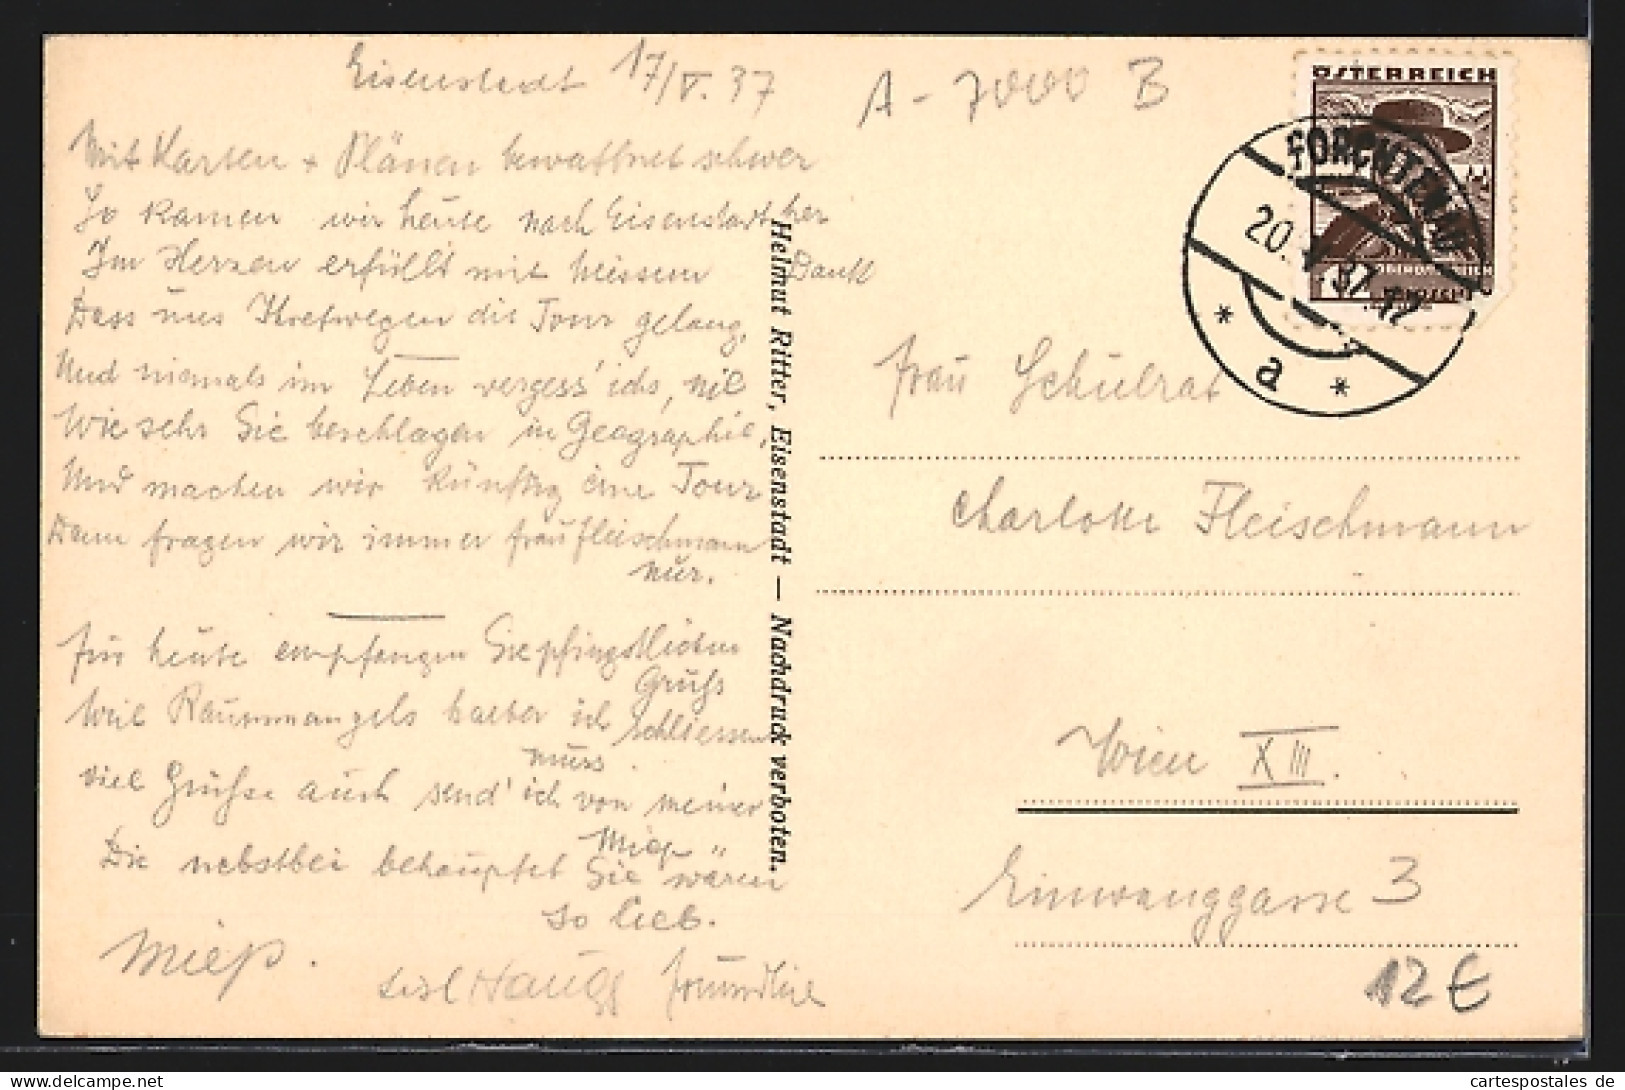 Eisenstadt 17/V. 37
Mit Karten + Plänen bewaffnet schwer
So kamen wir heute nach Eisenstadt her
Im Herzen erfüllt mit heissem Dank
Dass uns die Tour gelang,
Und niemals im Leben vergess' ich's, nie
Wie sehr Sie beschlagen in Geographie,
Und machen wir künftig eine Tour
Dann fragen wir immer Frau Fleischmann
nur.
Für heute empfangen Sie pfingstlichen
Gruss
Weil Raummangels halber ich schliessen
muss.
Viel Grüsse auch send' ich von meiner
Miep
Die nebstbei behauptet Sie wären
so lieb.
Miep.
Lisl Haugg
Helmut Ritter, Eisenstadt — Nachdruck verboten.
A - 7000 B
ÖSTERREICH
FORCHTENAU
20. V. 37. 17
* a *
Frau Schulrat
Charlotte Fleischmann
Wien XIII.
Einwanggasse 3
12€
cartespostales de
delcampe.net